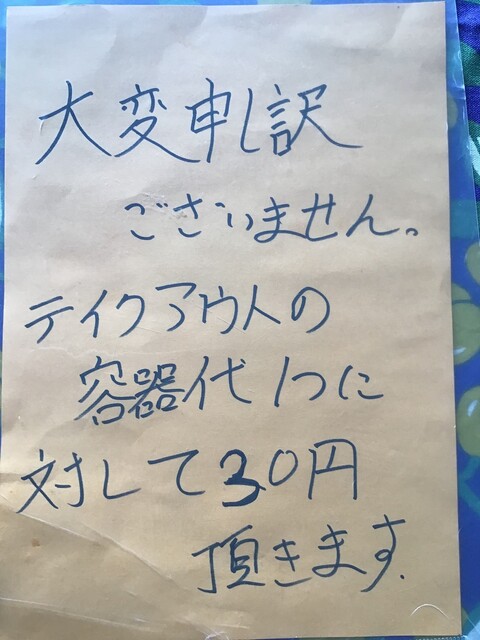 大変申し訳
ございません。
テイクアウトの
容器代1つに
対して30円
頂きます.